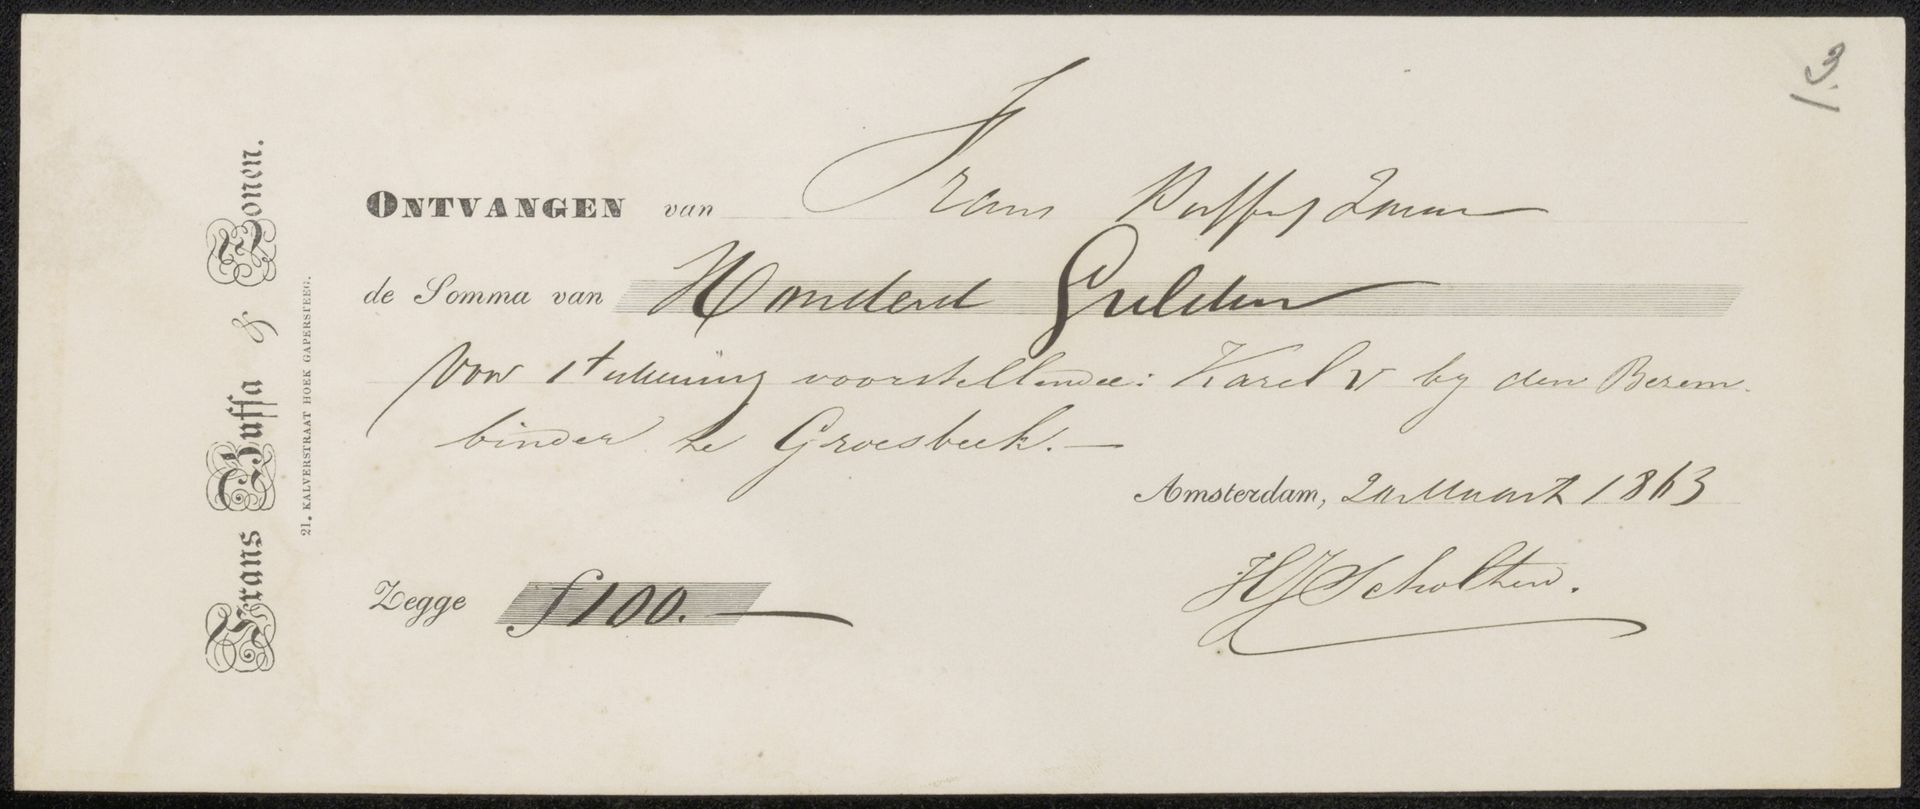 3.
Frans Buffa & Zonen.
21, KALVERSTRAAT HOEK GAPERSTEEG.
ONTVANGEN van Frans Buffa en Zonen
de Somma van Honderd Gulden
Voor 1 tekening voorstellende: Karel V by den Bezem-
binder te Groesbeek. —
Amsterdam, 20 Maart 1863
Zegge f 100. —
HJScholten.